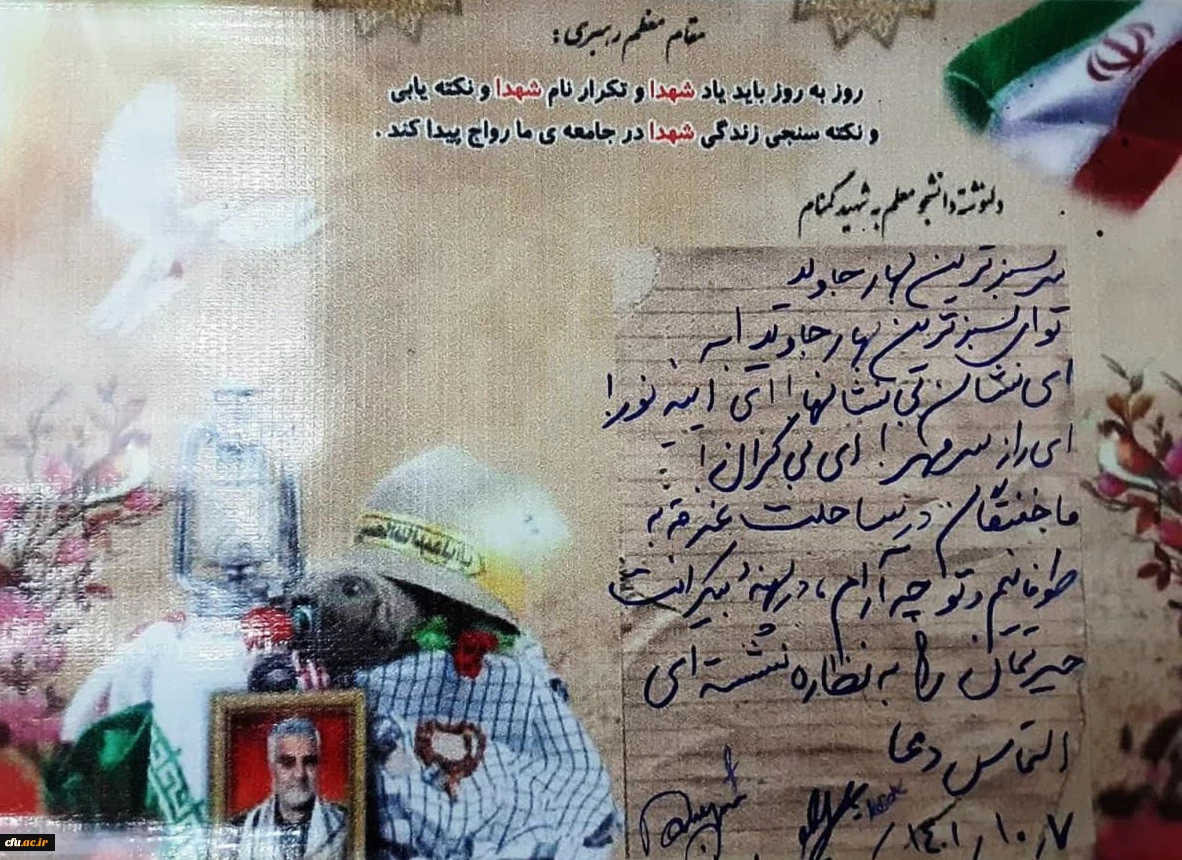 مقام معظم رهبری :
روز به روز باید یاد شهدا و تکرار نام شهدا و نکته یابی
و نکته سنجی زندگی شهدا در جامعه ی ما رواج پیدا کند .
دلنوشته دانشجو معلم به شهید گمنام
سرسبزترین بهار جاوید
توای سبزترین بهار جاوید
ای نشان بی نشانها! ای آیینه نور!
ای راز سر مهر! ای بی کران!
ما خفتگان در ساحلت غرقه به
طوفانیم و تو چه آرام، در پهنه بیکرانت
حیرتمان را به نظاره نشسته ای
التماس دعا
۱۴۰۱/۱۰/۷
یا اباعبدالله الحسین
cfu.ac.ir